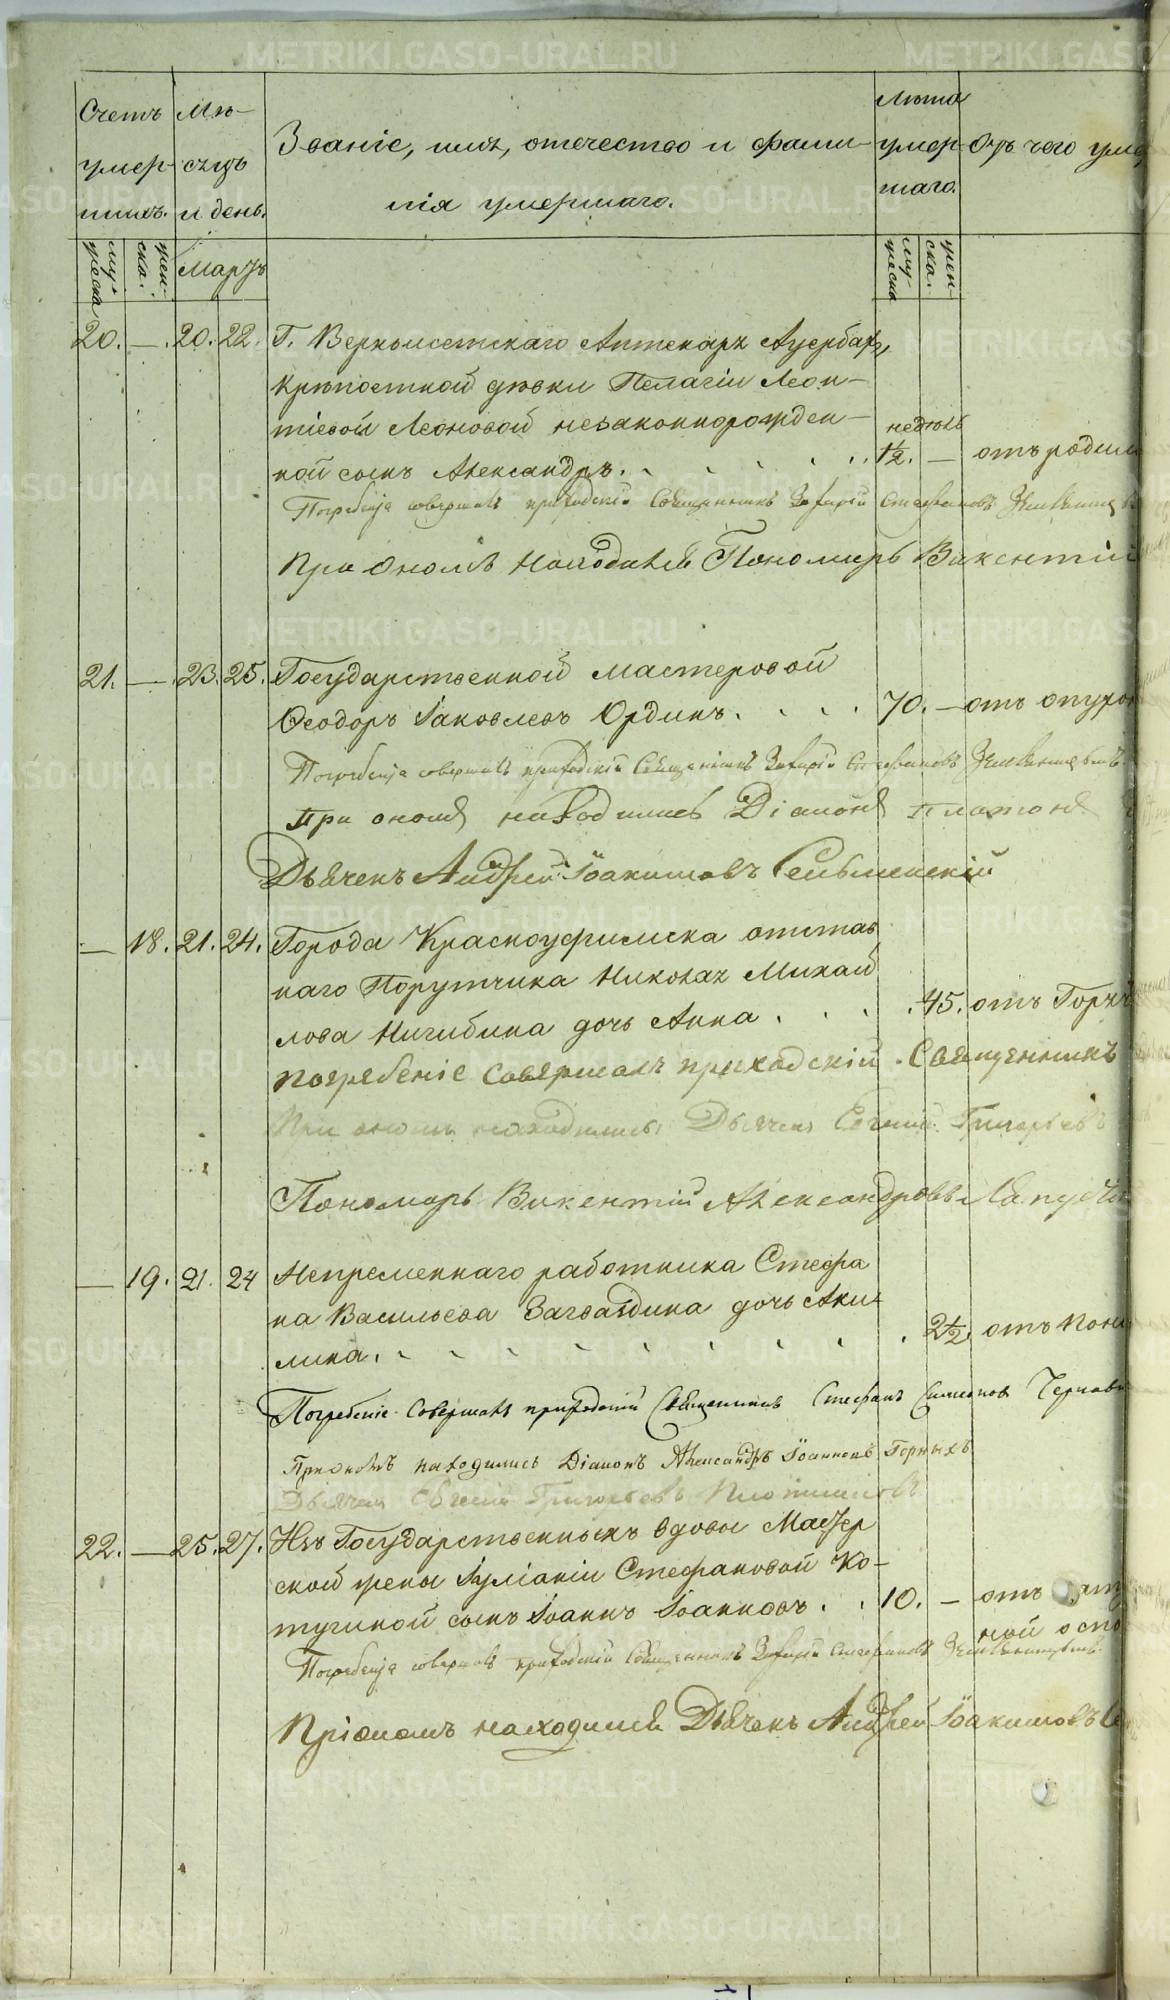 Счетъ умер- шихъ.
Мѣ- сяцъ и день.
Званіе, имя, отечество и фами-
лія умершаго.
Лѣта умер- шаго.
Отъ чего уме
муж- еска
жен- ска.
Мартъ
муж- еска
жен- ска.
20. — 20. 22. Г. Верхъисетскаго Аптекаря Ауербахъ,
крѣпостной дѣвки Пелагіи Леон-
тіевой Леоновой незаконнорожден-
недѣль
ной сынъ Александръ. 1½. — отъ родим
Погребеніе совершалъ приходскій Священникъ Захарій Стефановъ
При ономъ находился Пономарь Викентій
21. — 23. 25. Государственной мастеровой
Ѳеодоръ Іаковлевъ Ординъ. 70. — отъ опухо
Погребеніе совершалъ приходскій Священникъ Захарій Стефановъ
При ономъ находились Діаконъ Платонъ
Дьячекъ Андрей Іоакимовъ
— 18. 21. 24. Города Красноуфимска отстав
наго Порутчика Николая Михай
лова Нигибина дочь Анна. 45. отъ Горяч
Погребеніе совершалъ приходскій Священникъ
При ономъ находились Дьячекъ Евгеній Григорьевъ
Пономарь Викентій Александровъ
— 19. 21. 24 Непремѣннаго работника Стефа
на Васильева Загвоздина дочь Аки-
лина. 2½. отъ поно
Погребеніе совершалъ приходскій Священникъ Стефанъ Симеоновъ
При ономъ находились Діаконъ Александръ Іоанновъ Горныхъ
Дьячекъ Евгеній Григорьевъ Плотниковъ
22. — 25. 27. Изъ Государственныхъ вдовы Мастер
ской жены Іуліаніи Стефановой Ко-
тугиной сынъ Іоаннъ Іоанновъ. 10. — отъ
ной оспы
Погребеніе совершалъ приходскій Священникъ Захарій Стефановъ
При ономъ находился Дьячекъ Андрей Іоакимовъ
METRIKI.GASO-URAL.RU